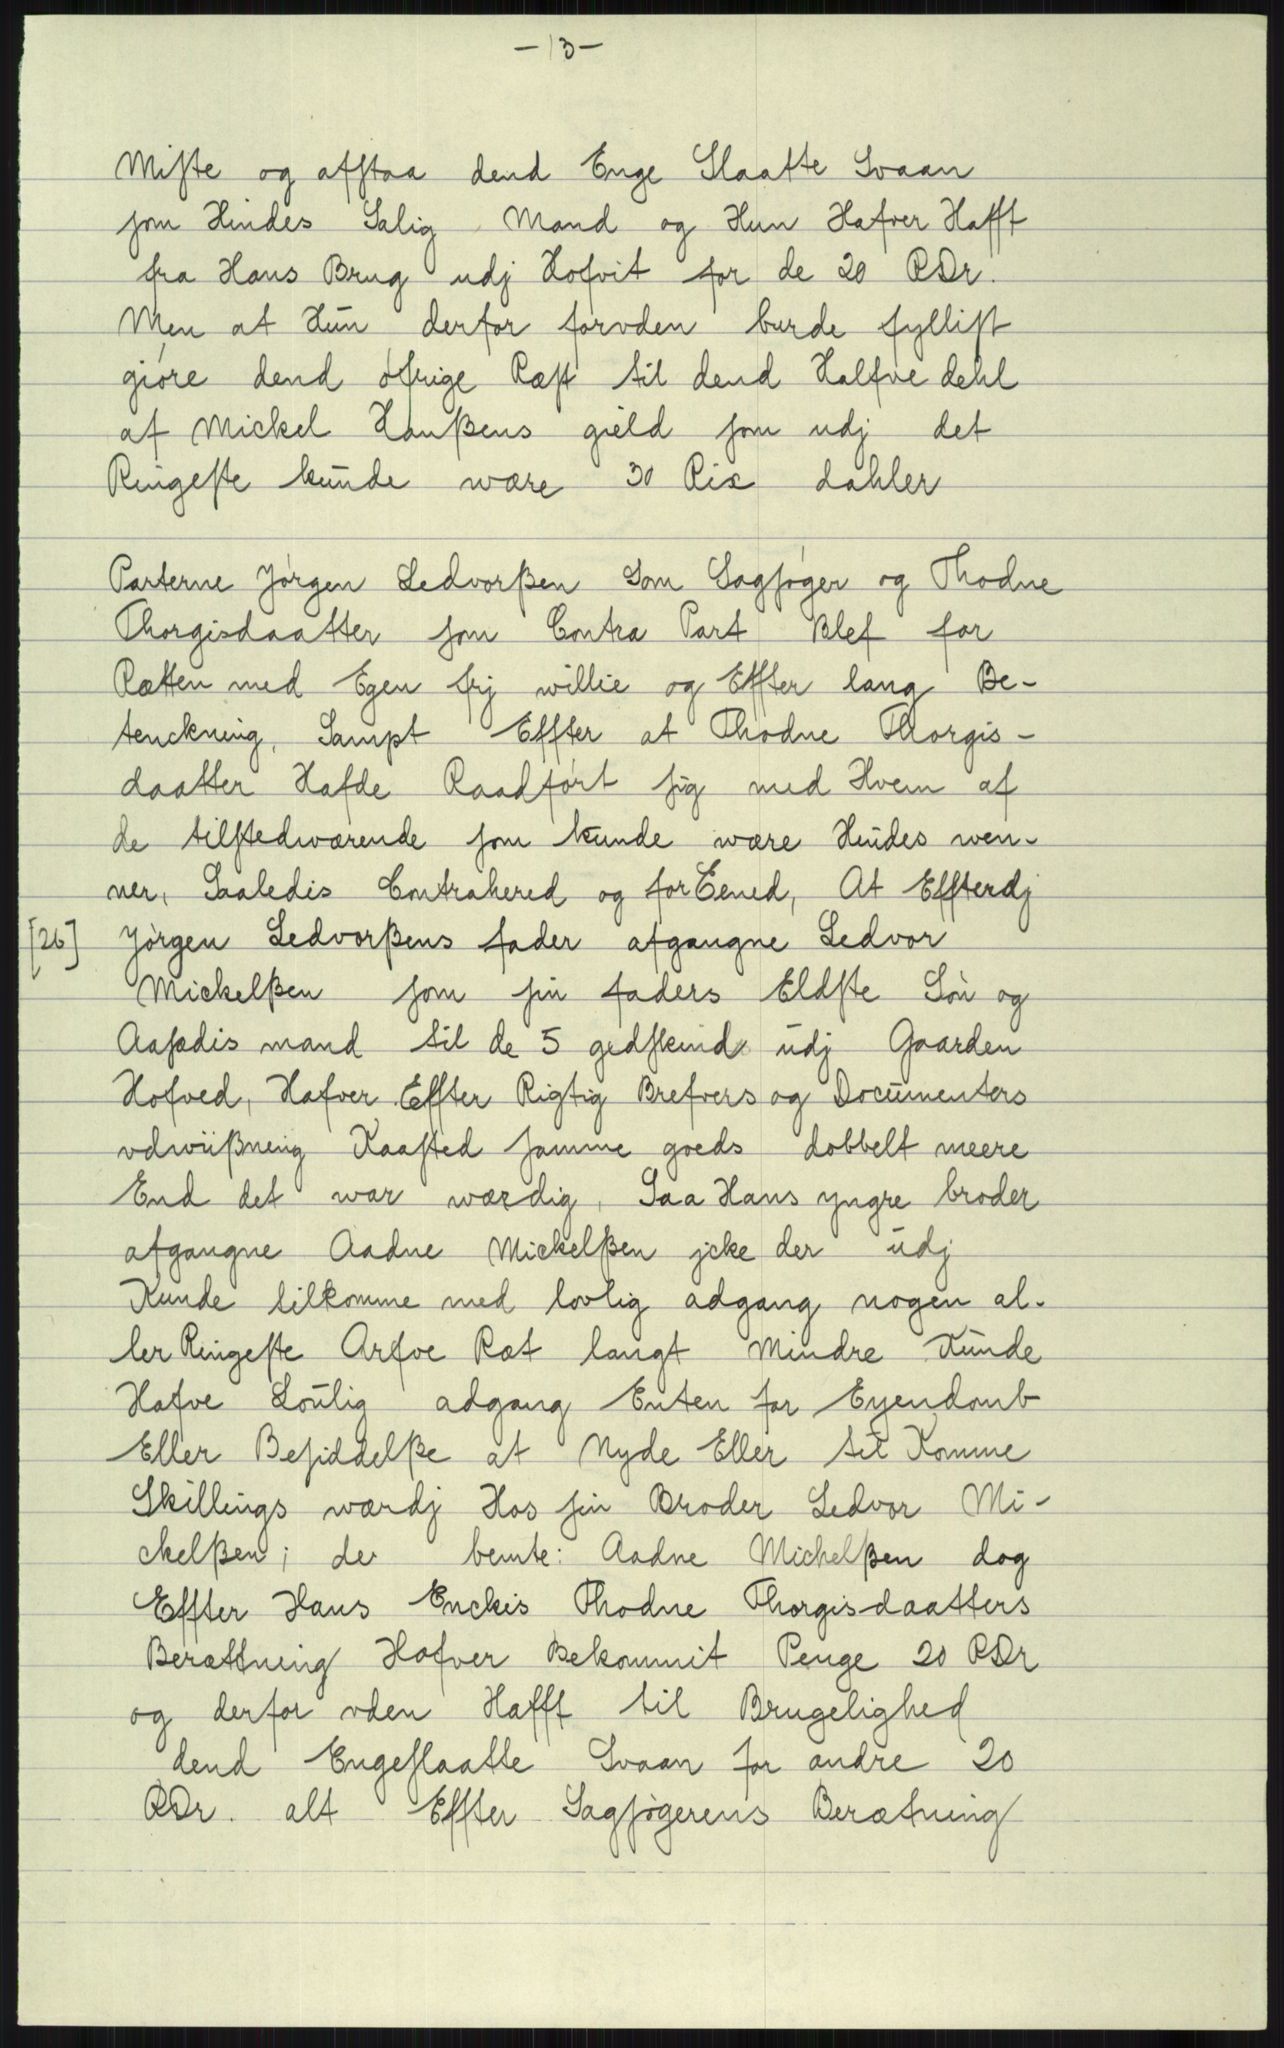 -13-
Miste og afstaa dend Enge Slaatte Svaan
som Hindes Salig Mand og Hun Hafver Hafft
fra Hans Brug udj Hofvit for de 20 RDr.
Men at Hun derfor forvden burde fyllist
giøre dend øfrige Ræst til dend Halfve dehl
af Mickel Hanßens gield som udj det
Ringeste kunde wære 30 Rix dahler
Parterne Jørgen Ledvorßen Som Sagsøger og Thodne
Thorgisdaatter som Contra Part Blef for
Rætten med Egen frj willie og Effter lang Be-
tenckning, Sampt Effter at Thodne Thorgis-
daatter Hafde Raadført sig med Hvem af
de tilstedwærende som kunde wære Hindes wen-
ner, Saaledis Contrahered og forEened, At Effterdj
[26] Jørgen Ledvorßens fader afgangne Ledvor
Mickelßen som sin faders Eldste Søn og
Aasædis mand til de 5 gedskind udj Gaarden
Hofved, Hafver Effter Rigtig Brefvers og Documenters
vdwiißning Kaasted samme goeds dobbelt meere
End det war wærdig, Saa Hans yngre broder
afgangne Aadne Mickelßen jcke der udj
Kunde tilkomme med lovlig adgang nogen al-
ler Ringeste Arfve Ræt langt Mindre Kunde
Hafve Loulig adgang Enten for Eyendomb
Eller Besiddelße at Nyde Eller til Komme
Skillings wærdj Hos sin Broder Ledvor Mi-
ckelßen; der bemte: Aadne Michelßen dog
Effter Hans Enckis Thodne Thorgisdaatters
Berættning Hafver Bekommit Penge 20 RDr
og derfor vden Hafft til Brugelighed
dend Engeslaatte Svaan for andre 20
RDr. alt Effter Sagsøgerens Berætning